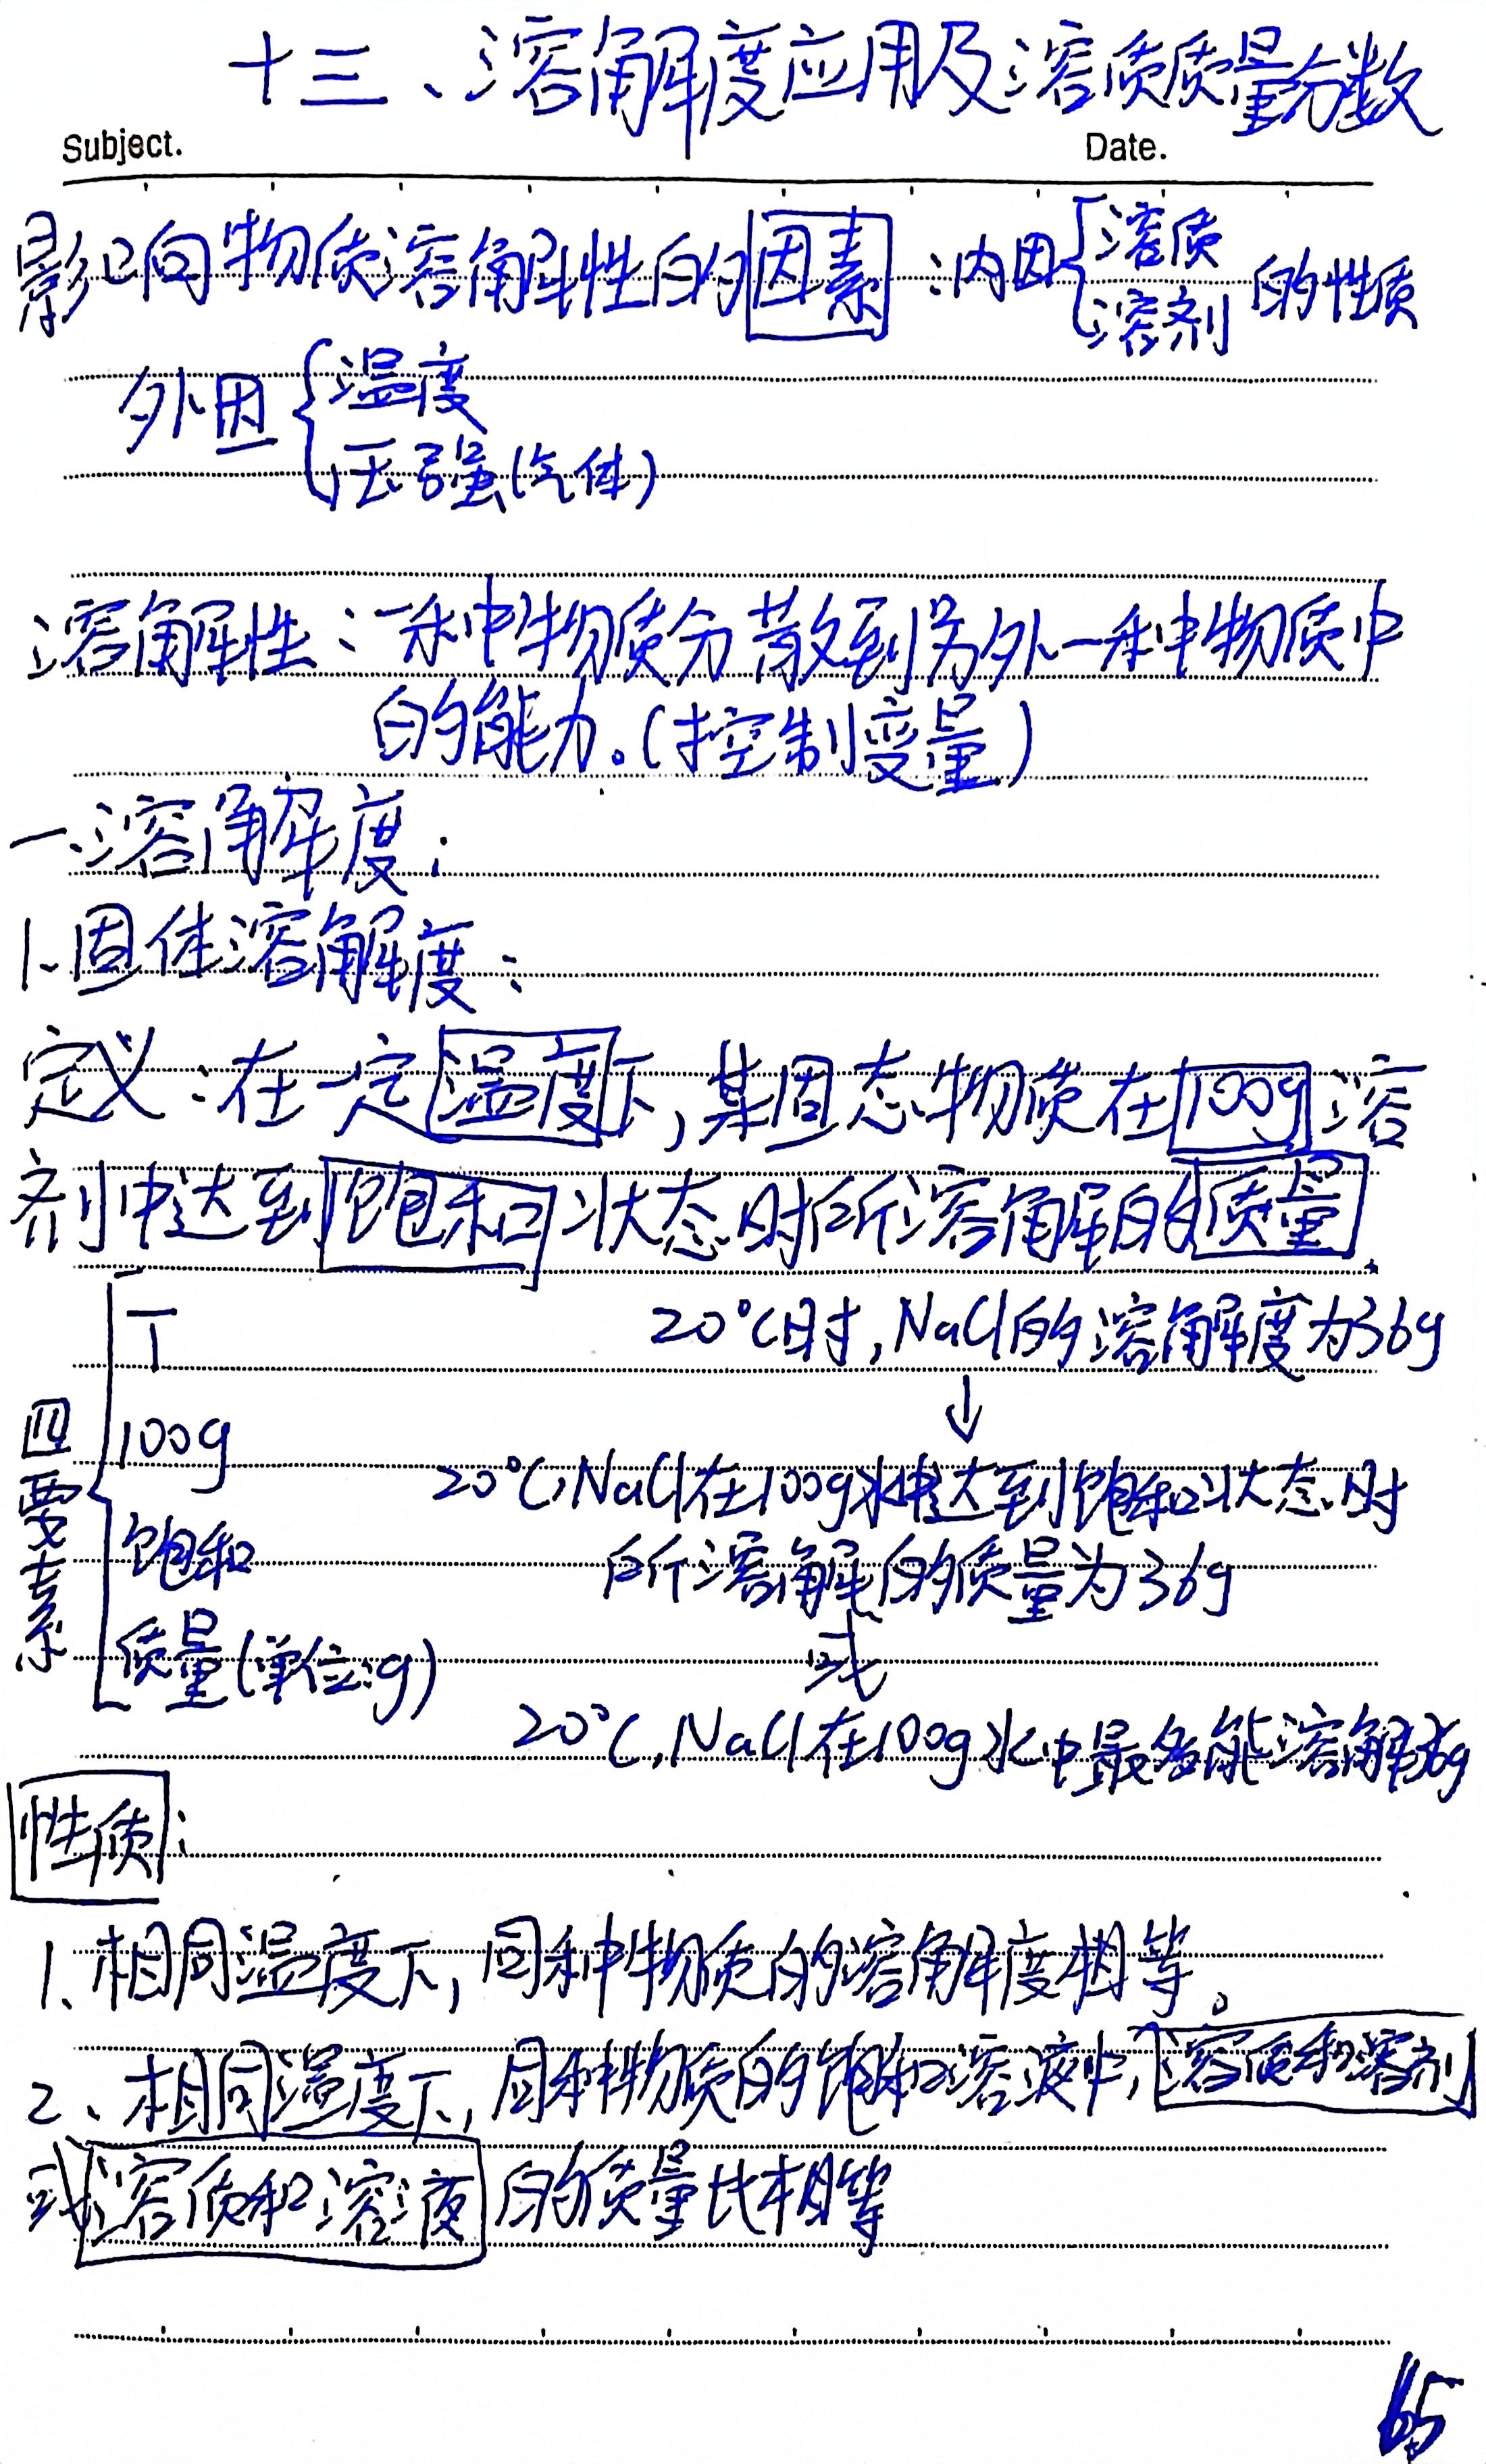 十三、溶解度应用及溶质质量分数
Subject.
Date.
影响物质溶解性的因素：内因{溶质 溶剂 的性质
外因{温度
压强(气体)
溶解性：一种物质分散到另外一种物质中
的能力。(控制变量)
一.溶解度：
1.固体溶解度：
定义：在一定温度下，某固态物质在100g溶
剂中达到饱和状态时所溶解的质量.
四要素
T
100g
饱和
质量(单位:g)
20℃时,NaCl的溶解度为36g
↓
20℃,NaCl在100g水中达到饱和状态时
所溶解的质量为36g
或
20℃,NaCl在100g水中最多能溶解36g
性质：
1、相同温度下，同种物质的溶解度相等。
2、相同温度下，同种物质的饱和溶液中，溶质和溶剂
或溶质和溶液的质量比相等
65